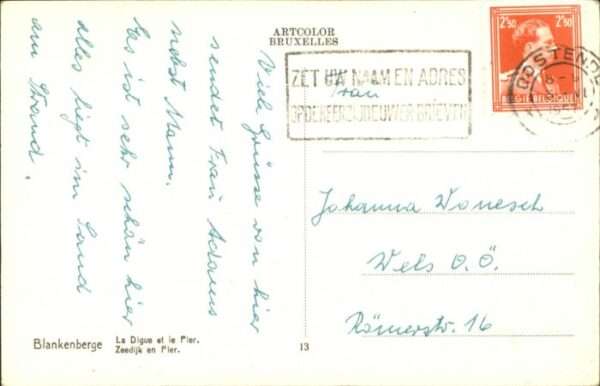 ARTCOLOR
BRUXELLES
2F50 2F50
BELGIE-BELGIQUE
OOSTENDE
ZET UW NAAM EN ADRES
OP DE KEERZIJDE UWER BRIEVEN
Viele Grüsse von hier
sendet Frau Adams
nebst Mann.
Es ist sehr schön hier
alles liegt im Sand
am Strand.
Frau
Johanna Wonesch
Wels O.Ö.
Römerstr. 16
Blankenberge
La Digue et le Pier.
Zeedijk en Pier.
13